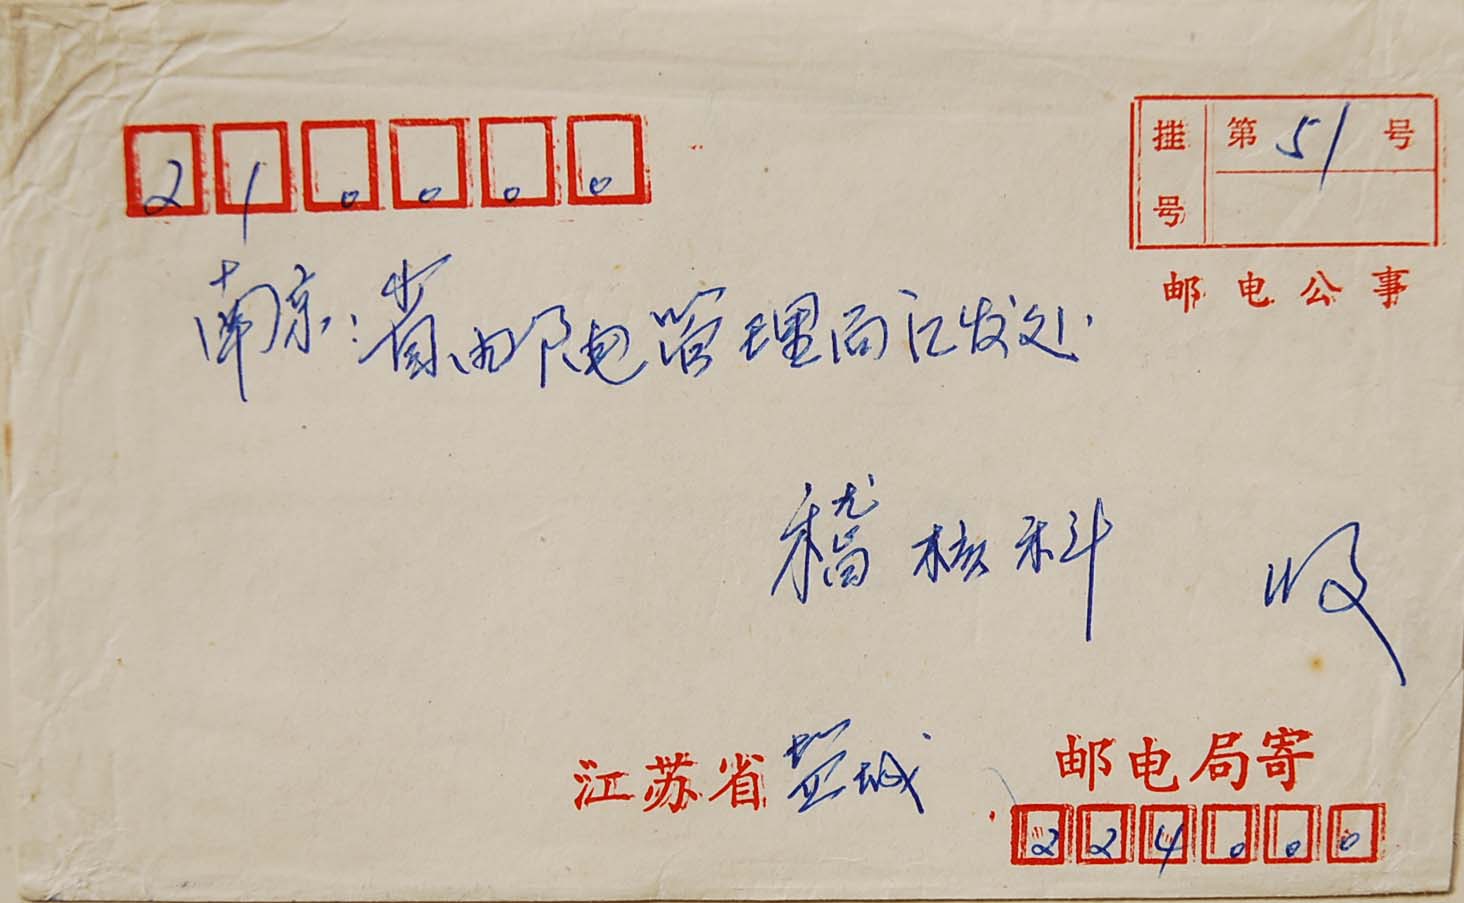 210000
挂号 第51号
邮电公事
南京:省邮电管理局汇发处
稽核科 收
江苏省盐城邮电局寄
224000